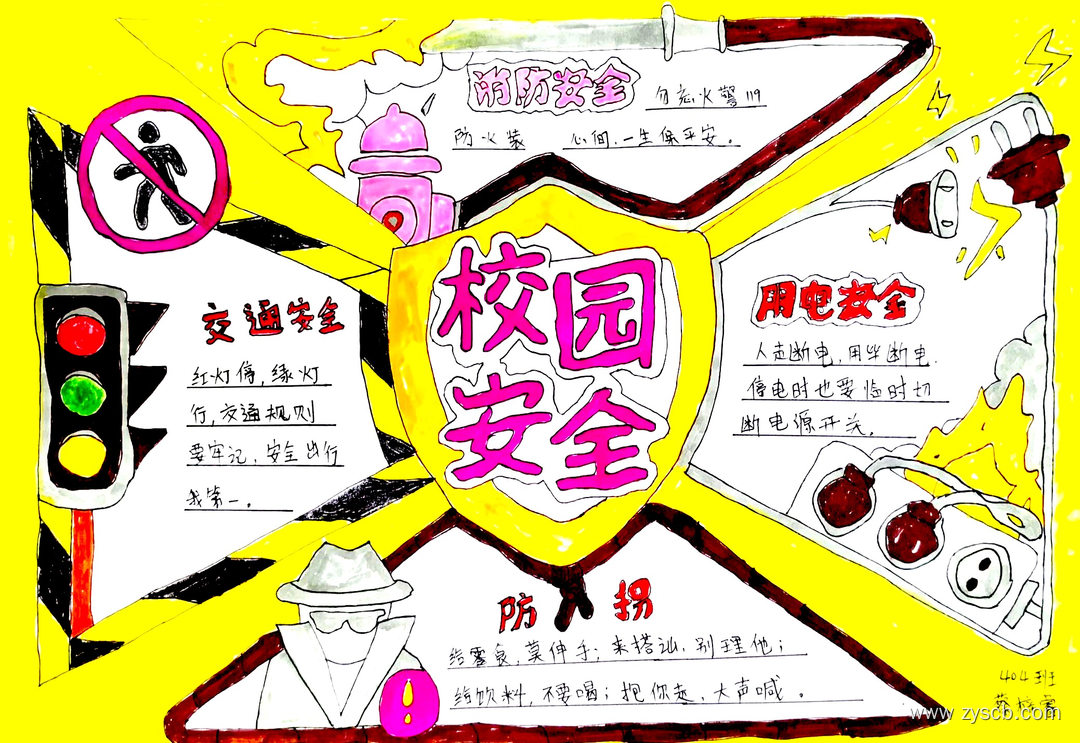 消防安全
勿忘火警119
防火装 心间、一生保平安。
校园
安全
交通安全
红灯停,绿灯
行,交通规则
要牢记,安全出行
我第一。
用电安全
人走断电,用毕断电.
停电时也要临时切
断电源开关。
防拐
给零食,莫伸手;来搭讪,别理他;
给饮料,不要喝;抱你走,大声喊。
404班
www.zyscb.com